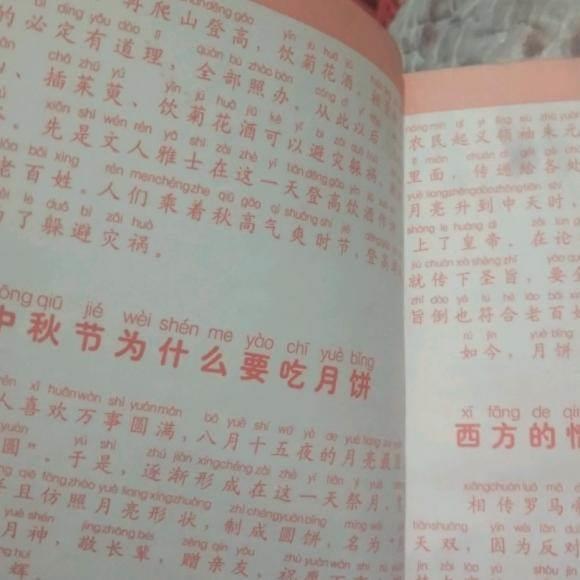 再爬山登高，饮菊花酒，
的必定有道理，全部照办。从此以后，
、插茱萸、饮菊花酒可以避灾躲祸，
。先是文人雅士在这一天登高饮酒作
老百姓。人们乘着秋高气爽时节，登高
了躲避灾祸。
中秋节为什么要吃月饼
人喜欢万事圆满，八月十五夜的月亮最
圆”。于是，逐渐形成在这一天祭月、
且仿照月亮形状，制成圆饼，名为“
月神，敬长辈，赠亲友，
辉。
农民起义领袖朱元
里面，传递给各
月亮升到中天时，
上了皇帝。在论
就传下圣旨，要
旨倒也符合老百
如今，月饼
西方的
相传罗马
天双，因为反对